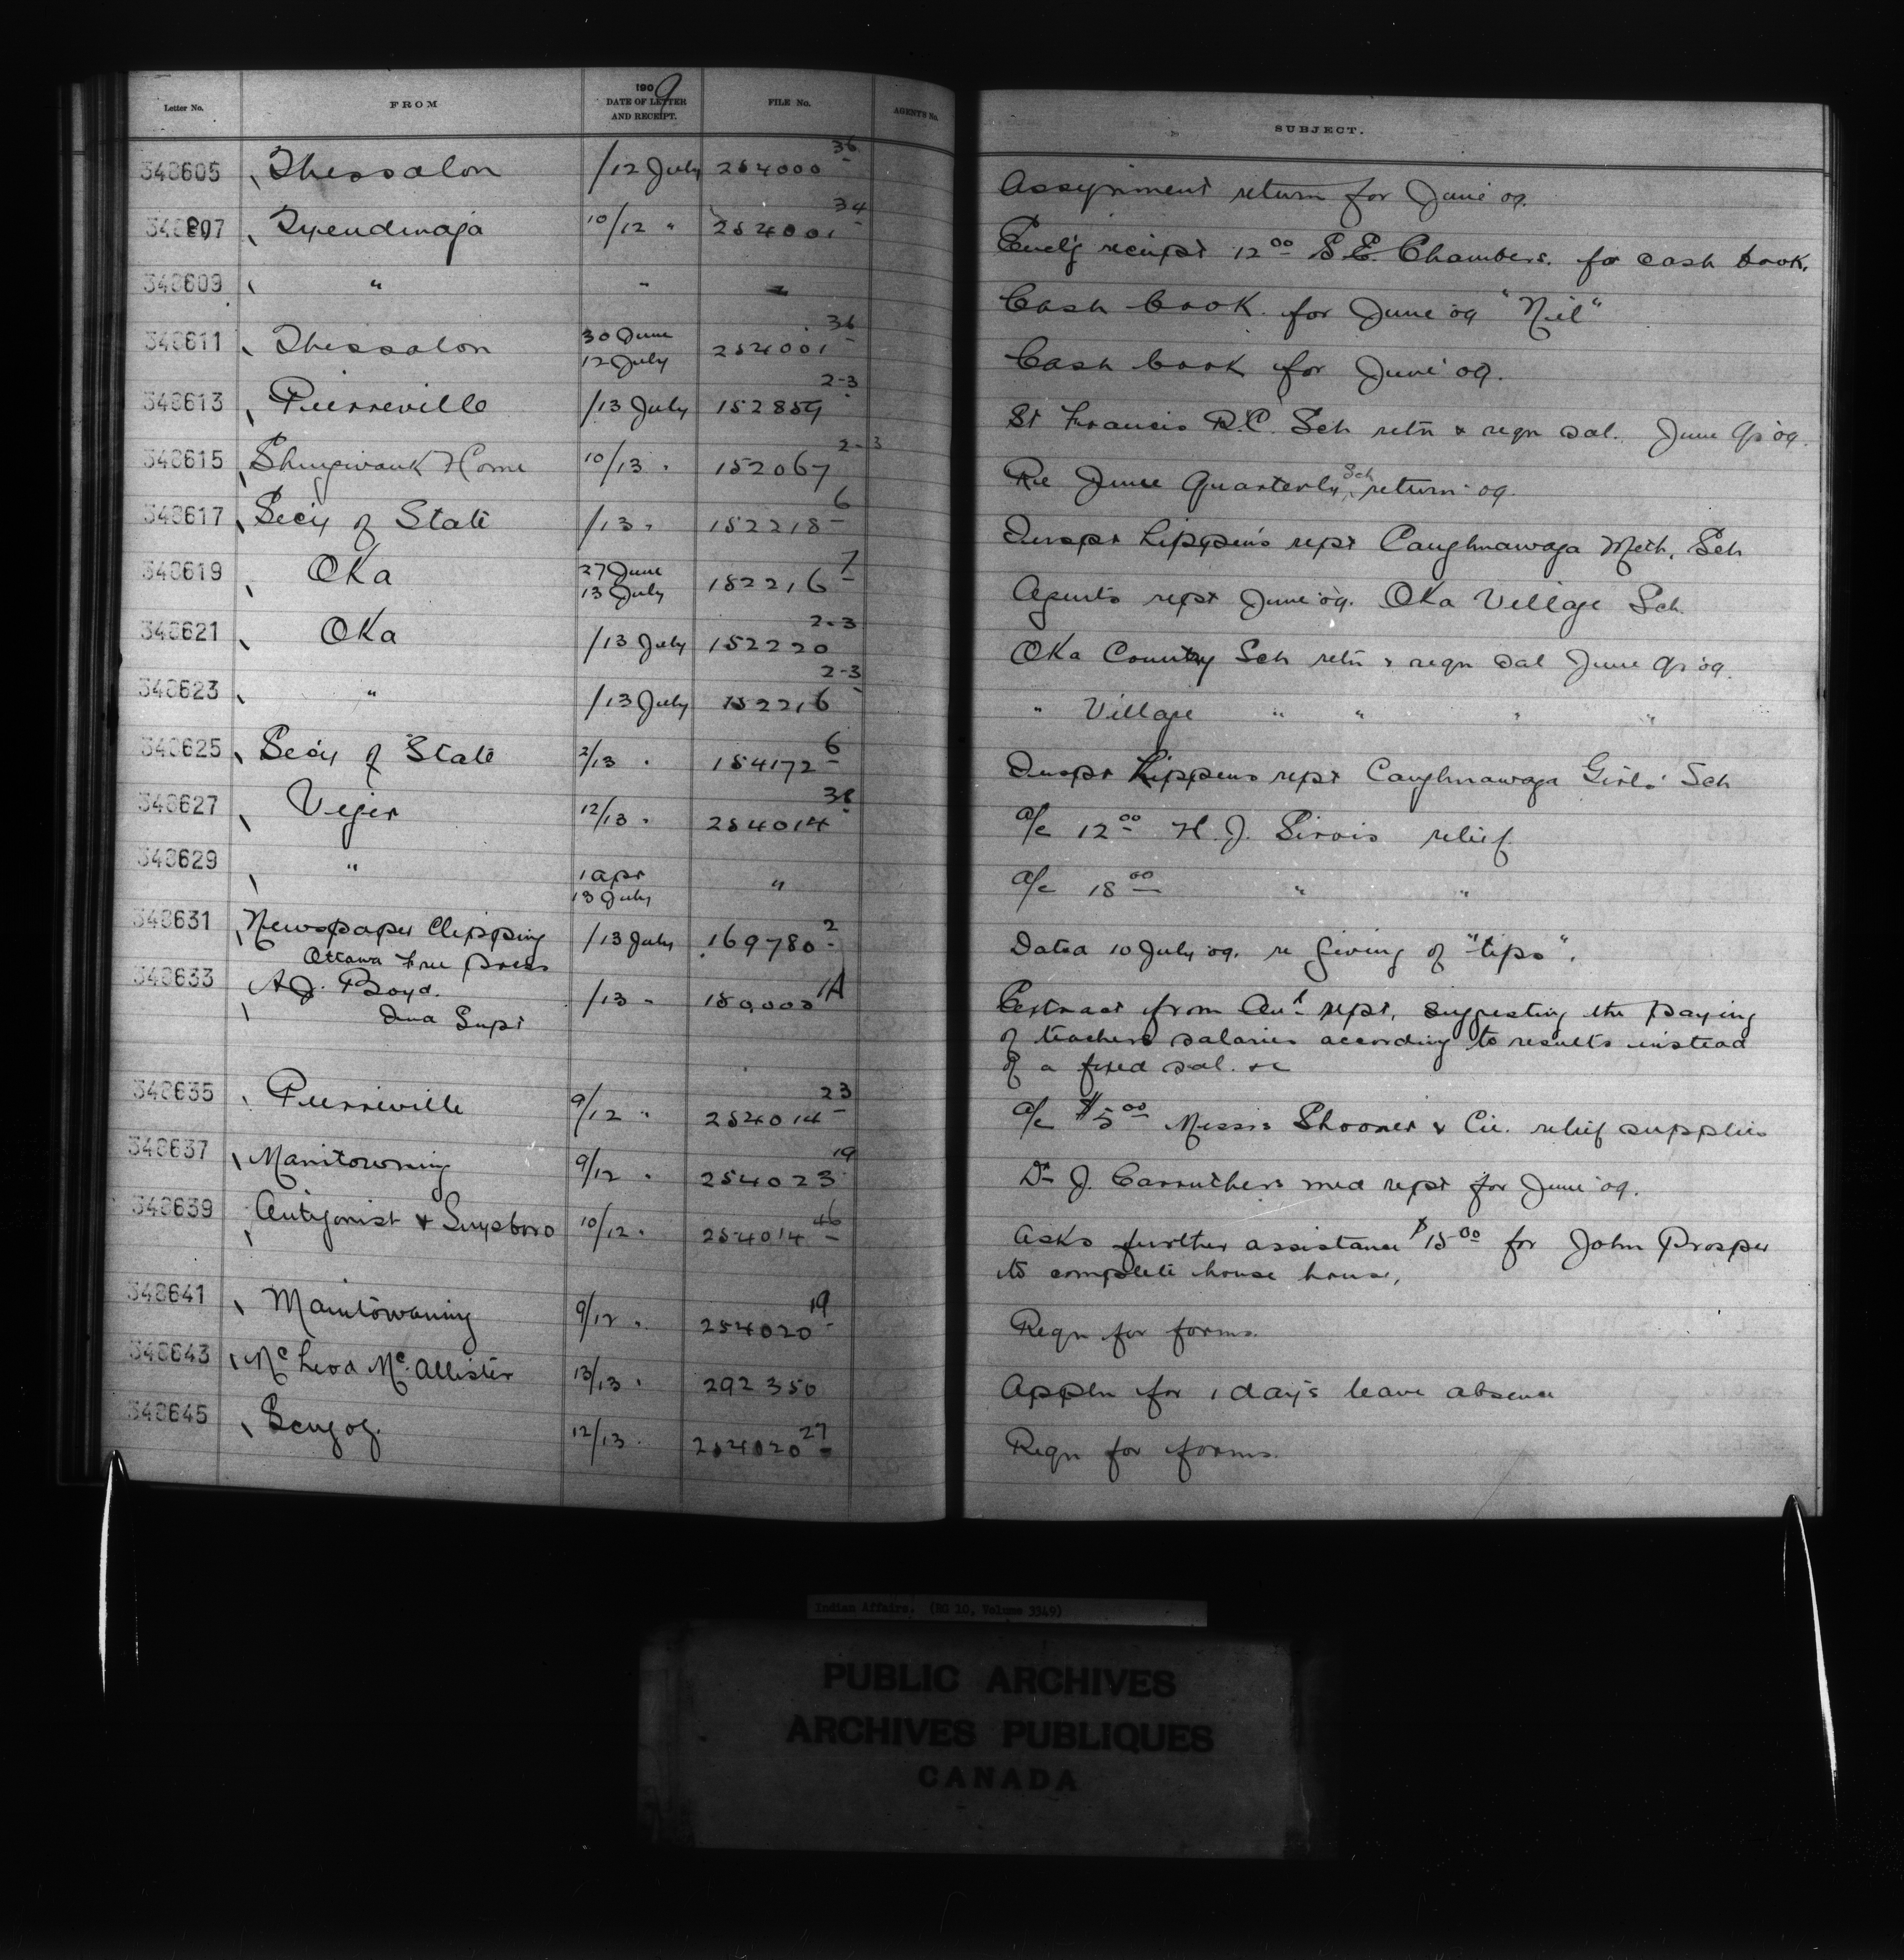 Letter No. FROM 1909 DATE OF LETTER AND RECEIPT. FILE No. AGENT'S No. SUBJECT.
348605 Thessalon /12 July 254000 36 Assignment return for June '09.
348607 Tyendinaga 10/12 " 254001 34 Encl'g receipt 12 00 S.E. Chambers. for cash book.
348609 " " " Cash book for June '09 "Nil"
348611 Thessalon 30 June 12 July 254001 36 Cash book for June '09.
348613 Pierreville /13 July 152859 2-3 St Francis R.C. Sch retn & reqn sal. June Qr '09.
348615 Shingwauk Home 10/13 " 152067 2-3 Re June Quarterly Sch return '09.
348617 Sec'y of State /13 " 152218 6 Inspr Lippen's rept Caughnawaga Meth. Sch
348619 Oka 27 June 13 July 152216 7 Agents rept June '09. Oka Village Sch.
348621 Oka /13 July 152220 2-3 Oka Country Sch retn & reqn sal June Qr '09.
348623 " /13 July 152216 2-3 " Village " " " "
348625 Sec'y of State 2/13 " 154172 6 Inspr Lippens rept Caughnawaga Girls' Sch
348627 Viger 12/13 " 254014 38 a/c 12 00 H. J. Sirois relief
348629 " 1 Apr 13 July " a/c 18 00 " "
348631 Newspaper Clipping Ottawa Free Press /13 July 169780 2 Dated 10 July '09. re giving of "tips".
348633 A.J. Boyd. Ind Supt /13 " 150,003 1A Extract from Anl rept. suggesting the paying
of teachers salaries according to results instead
of a fixed sal. &c
348635 Pierreville 9/12 " 254014 23 a/c $5 00 Messrs Shooner & Cie. relief supplies
348637 Manitowning 9/12 " 254023 19 Dr J. Carruthers med rept for June '09.
348639 Antigonist & Guysboro 10/12 " 254014 46 Asks further assistance $15 00 for John Prosper
to complete house house,
348641 Manitowaning 9/12 " 254020 19 Reqn for forms.
348643 McLeod McAllister 13/13 " 292350 Appln for 1 day's leave absence
348645 Scugog. 12/13 " 254020 27 Reqn for forms.
Indian Affairs. (RG 10, Volume 3349)
PUBLIC ARCHIVES
ARCHIVES PUBLIQUES
CANADA